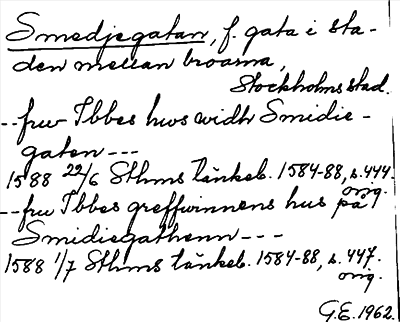 Smedjegatan, f. gata i sta-
den mellan broarna,
Stockholms stad.
-- fru Ibbes hws widh Smidie-
gaten ---
1588 22/6 Sthms tänkeb. 1584-88, s. 444.
orig.
-- fru Ibbes greffwinnens hus på
Smidiegathenn ---
1588 1/7 Sthms tänkeb. 1584-88, s. 447.
orig.
G.E. 1962.